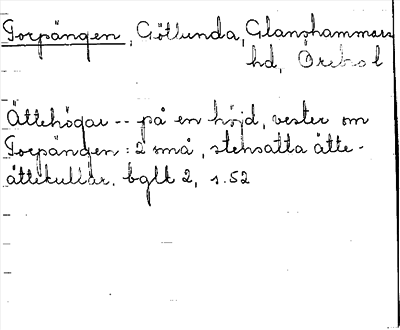 Torpängen, Götlunda, Glanshammars
hd, Örebro l
Ättehögar -- på en höjd, vester om
Torpängen: 2 små, stensatta ätte-
ättekullar. bglt 2, s. 52